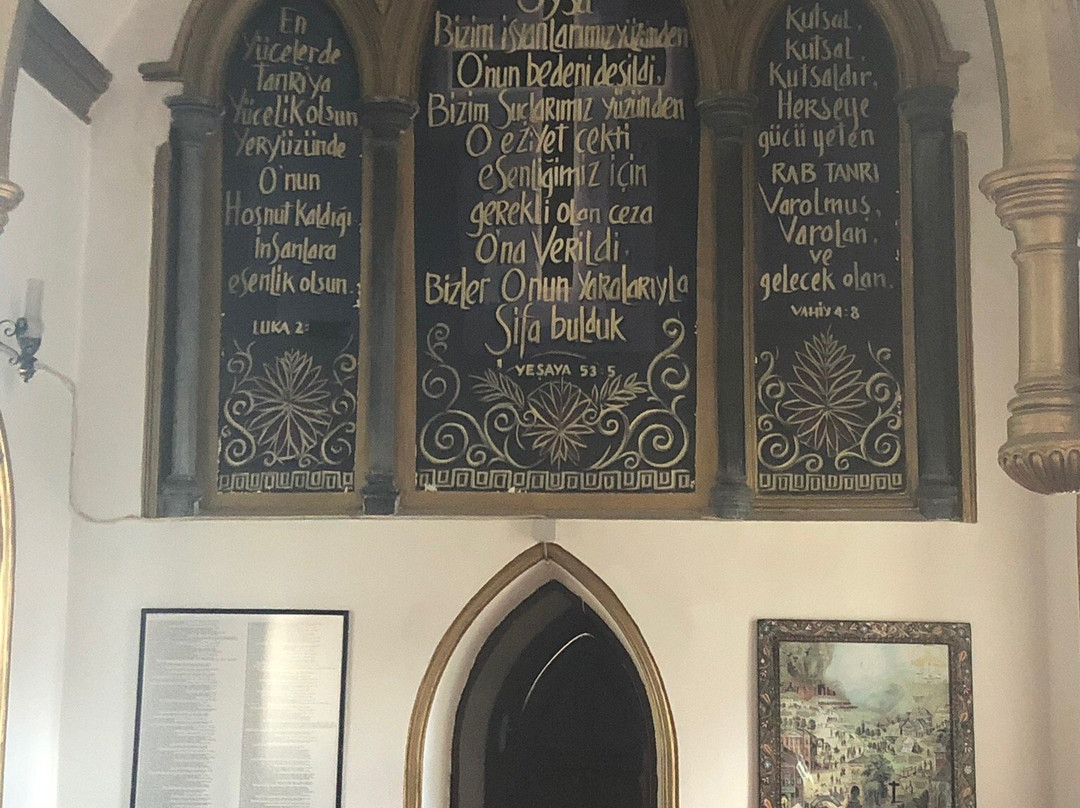 En
Yücelerde
Tanrıya
Yücelik olsun
Yeryüzünde
O'nun
Hoşnut Kaldığı
İnsanlara
eSenlik olsun.
LUKA 2:
Oysa
Bizim isyanlarımız yüzünden
O'nun bedeni deşildi,
Bizim Suçlarımız yüzünden
O eziyet çekti
eSenliğimiz için
gerekli olan ceza
O'na Verildi.
Bizler O'nun yaralarıyla
Şifa bulduk
YEŞAYA 53:5
Kutsal,
kutsal,
Kutsaldır,
Herşeye
gücü yeten
RAB TANRI
Varolmuş,
Varolan,
ve
gelecek olan.
VAHİY 4:8